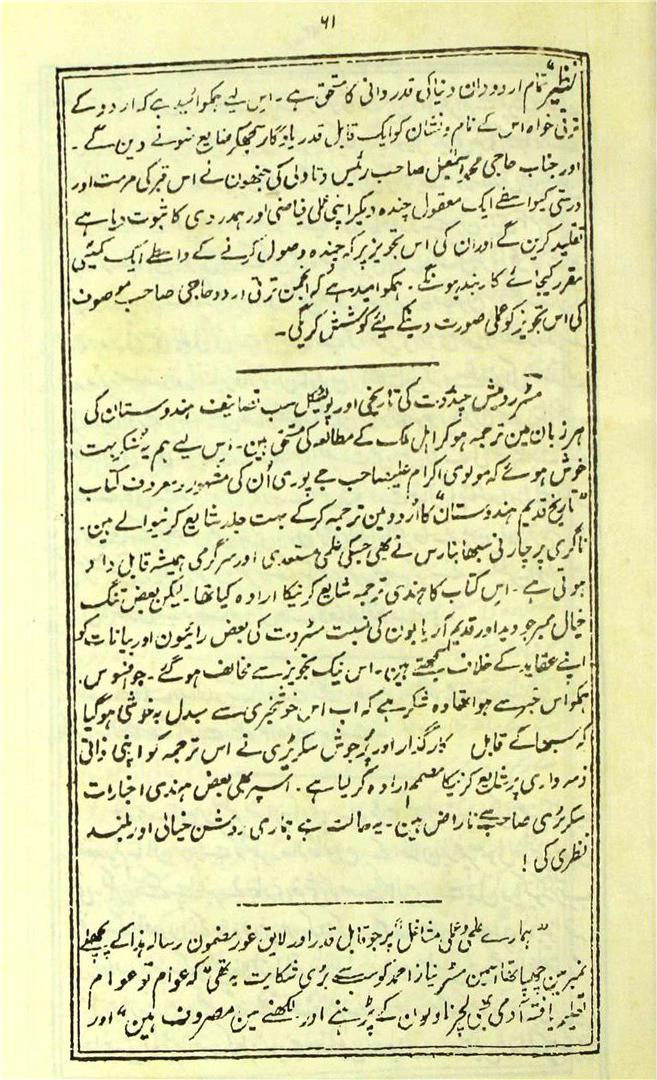 ۶۱
نظیر تمام اردودان دنیا کی قدردانی کا مستحق ہے ۔ اس لیے ہمکو امید ہے کہ اردو کے
ترقی خواہ اس کے نام و نشان کو ایک قابل قدر یادگار سمجھکر ضایع نہونے دین گے ۔
اور جناب حاجی محمد اسمٰعیل صاحب رئیس دتاولی کی جنھون نے اس قبر کی مرمت اور
درستی کیواسطے ایک معقول چندہ دیکر اپنی عملی فیاضی اور ہمدردی کا ثبوت دیا ہے
تقلید کرین گے اور ان کی اس تجویز پر کہ چندہ وصول کرنے کے واسطے ایک کمیٹی
مقرر کیجائے کاربند ہونگے ۔ ہمکو امید ہے کہ انجمن ترقی اردو حاجی صاحب موصوف
کی اس تجویز کو عملی صورت دینے کے لیے کوشش کریگی ۔
مسٹر رومیش چندر دت کی تاریخی اور پولیٹیکل سب تصانیف ہندوستان کی
ہر زبان مین ترجمہ ہوکر اہل ملک کے مطالعہ کی مستحق ہین ۔ اس لیے ہم یہ سنکر بہت
خوش ہوئے کہ مولوی اکرام علی صاحب جے پوری اُن کی مشہور و معروف کتاب
"تاریخ قدیم ہندوستان" کا اُردو مین ترجمہ کرکے بہت جلد شایع کرنیوالے ہین ۔
ناگری پرچارنی سبھا بنارس نے بھی جسکی علمی مستعدی اور سرگرمی ہمیشہ قابل داد
ہوتی ہے ۔ اس کتاب کا ہندی ترجمہ شایع کرنیکا ارادہ کیا تھا ۔ لیکن بعض تنگ
خیال ممبر جو وید اور قدیم آریاؤن کی نسبت مسٹر دت کی بعض رائیون اور بیانات کو
اپنے عقاید کے خلاف سمجھتے ہین ۔ اس نیک تجویز سے مخالف ہوگئے ۔ جو افسوس
ہمکو اس خبر سے ہوا تھا وہ شکر ہے کہ اب اس خوشخبری سے مبدل بہ خوشی ہوگیا
کہ سبھا کے قابل کارگذار اور پُرجوش سکرٹری نے اس ترجمہ کو اپنی ذاتی
ذمہ داری پر شایع کرنیکا مصمم ارادہ کرلیا ہے ۔ اسپر بھی بعض ہندی اخبارات
سکرٹری صاحب سے ناراض ہین ۔ یہ حالت ہے ہماری روشن خیالی اور بلند
نظری کی !
"ہمارے علمی و عملی مشاغل" پر جو قابل قدر اور لایق غور مضمون رسالہ ہذا کے پچھلے
نمبر مین چھپا تھا اسمین مسٹر نیاز احمد کو سب سے بڑی شکایت یہ تھی "کہ عوام تو عوام
تعلیم یافتہ آدمی بھی لچر ناولون کے پڑہنے اور لکھنے مین مصروف ہین" اور